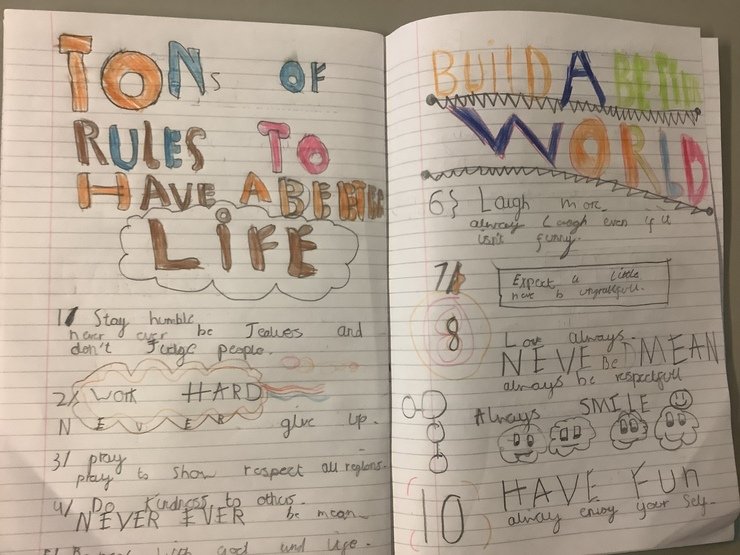 TONs OF
RULES TO
HAVE A BETTER
LiFE
1/ Stay humble
never ever be Jealues and
don't Judge people.
2/ work HARD
NEVER give up.
3/ pray
pray to show respect all regions.
4/ Do kindness to others.
NEVER EVER be mean.
with god and
BUilD A BETTER
WORLD
6} Laugh more
always Laugh even if it
isn't funny.
7/ Expect a little
have to
8 Love always
NEVE Be MEAN
always be respectfull
Always SMILE
10 HAVE FUN
alway enjoy your self.